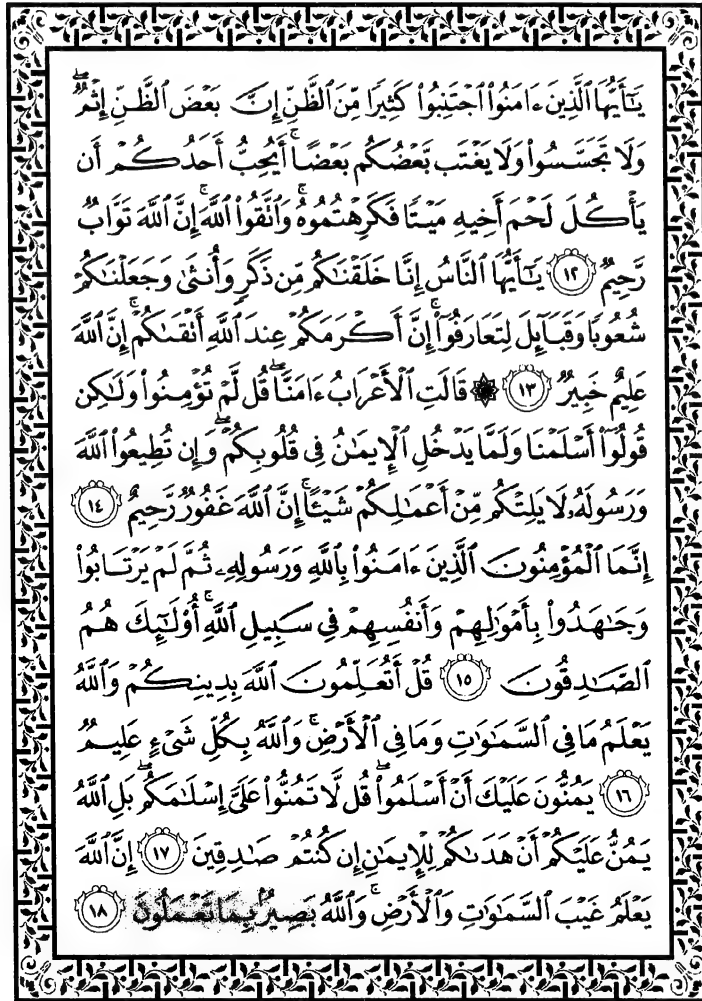 يَٰٓأَيُّهَا ٱلَّذِينَ ءَامَنُوا۟ ٱجْتَنِبُوا۟ كَثِيرًا مِّنَ ٱلظَّنِّ إِنَّ بَعْضَ ٱلظَّنِّ إِثْمٌۖ
وَلَا تَجَسَّسُوا۟ وَلَا يَغْتَب بَّعْضُكُم بَعْضًاۚ أَيُحِبُّ أَحَدُكُمْ أَن
يَأْكُلَ لَحْمَ أَخِيهِ مَيْتًا فَكَرِهْتُمُوهُۚ وَٱتَّقُوا۟ ٱللَّهَۚ إِنَّ ٱللَّهَ تَوَّابٌ
رَّحِيمٌ ١٢ يَٰٓأَيُّهَا ٱلنَّاسُ إِنَّا خَلَقْنَٰكُم مِّن ذَكَرٍ وَأُنثَىٰ وَجَعَلْنَٰكُمْ
شُعُوبًا وَقَبَآئِلَ لِتَعَارَفُوٓا۟ۚ إِنَّ أَكْرَمَكُمْ عِندَ ٱللَّهِ أَتْقَىٰكُمْۚ إِنَّ ٱللَّهَ
عَلِيمٌ خَبِيرٌ ١٣ ۞ قَالَتِ ٱلْأَعْرَابُ ءَامَنَّاۖ قُل لَّمْ تُؤْمِنُوا۟ وَلَٰكِن
قُولُوٓا۟ أَسْلَمْنَا وَلَمَّا يَدْخُلِ ٱلْإِيمَٰنُ فِى قُلُوبِكُمْۖ وَإِن تُطِيعُوا۟ ٱللَّهَ
وَرَسُولَهُۥ لَا يَلِتْكُم مِّنْ أَعْمَٰلِكُمْ شَيْـًٔاۚ إِنَّ ٱللَّهَ غَفُورٌ رَّحِيمٌ ١٤
إِنَّمَا ٱلْمُؤْمِنُونَ ٱلَّذِينَ ءَامَنُوا۟ بِٱللَّهِ وَرَسُولِهِۦ ثُمَّ لَمْ يَرْتَابُوا۟
وَجَٰهَدُوا۟ بِأَمْوَٰلِهِمْ وَأَنفُسِهِمْ فِى سَبِيلِ ٱللَّهِۚ أُو۟لَٰٓئِكَ هُمُ
ٱلصَّٰدِقُونَ ١٥ قُلْ أَتُعَلِّمُونَ ٱللَّهَ بِدِينِكُمْ وَٱللَّهُ
يَعْلَمُ مَا فِى ٱلسَّمَٰوَٰتِ وَمَا فِى ٱلْأَرْضِۚ وَٱللَّهُ بِكُلِّ شَىْءٍ عَلِيمٌ
١٦ يَمُنُّونَ عَلَيْكَ أَنْ أَسْلَمُوا۟ۖ قُل لَّا تَمُنُّوا۟ عَلَىَّ إِسْلَٰمَكُمۖ بَلِ ٱللَّهُ
يَمُنُّ عَلَيْكُمْ أَنْ هَدَىٰكُمْ لِلْإِيمَٰنِ إِن كُنتُمْ صَٰدِقِينَ ١٧ إِنَّ ٱللَّهَ
يَعْلَمُ غَيْبَ ٱلسَّمَٰوَٰتِ وَٱلْأَرْضِۚ وَٱللَّهُ بَصِيرٌۢ بِمَا تَعْمَلُونَ ١٨